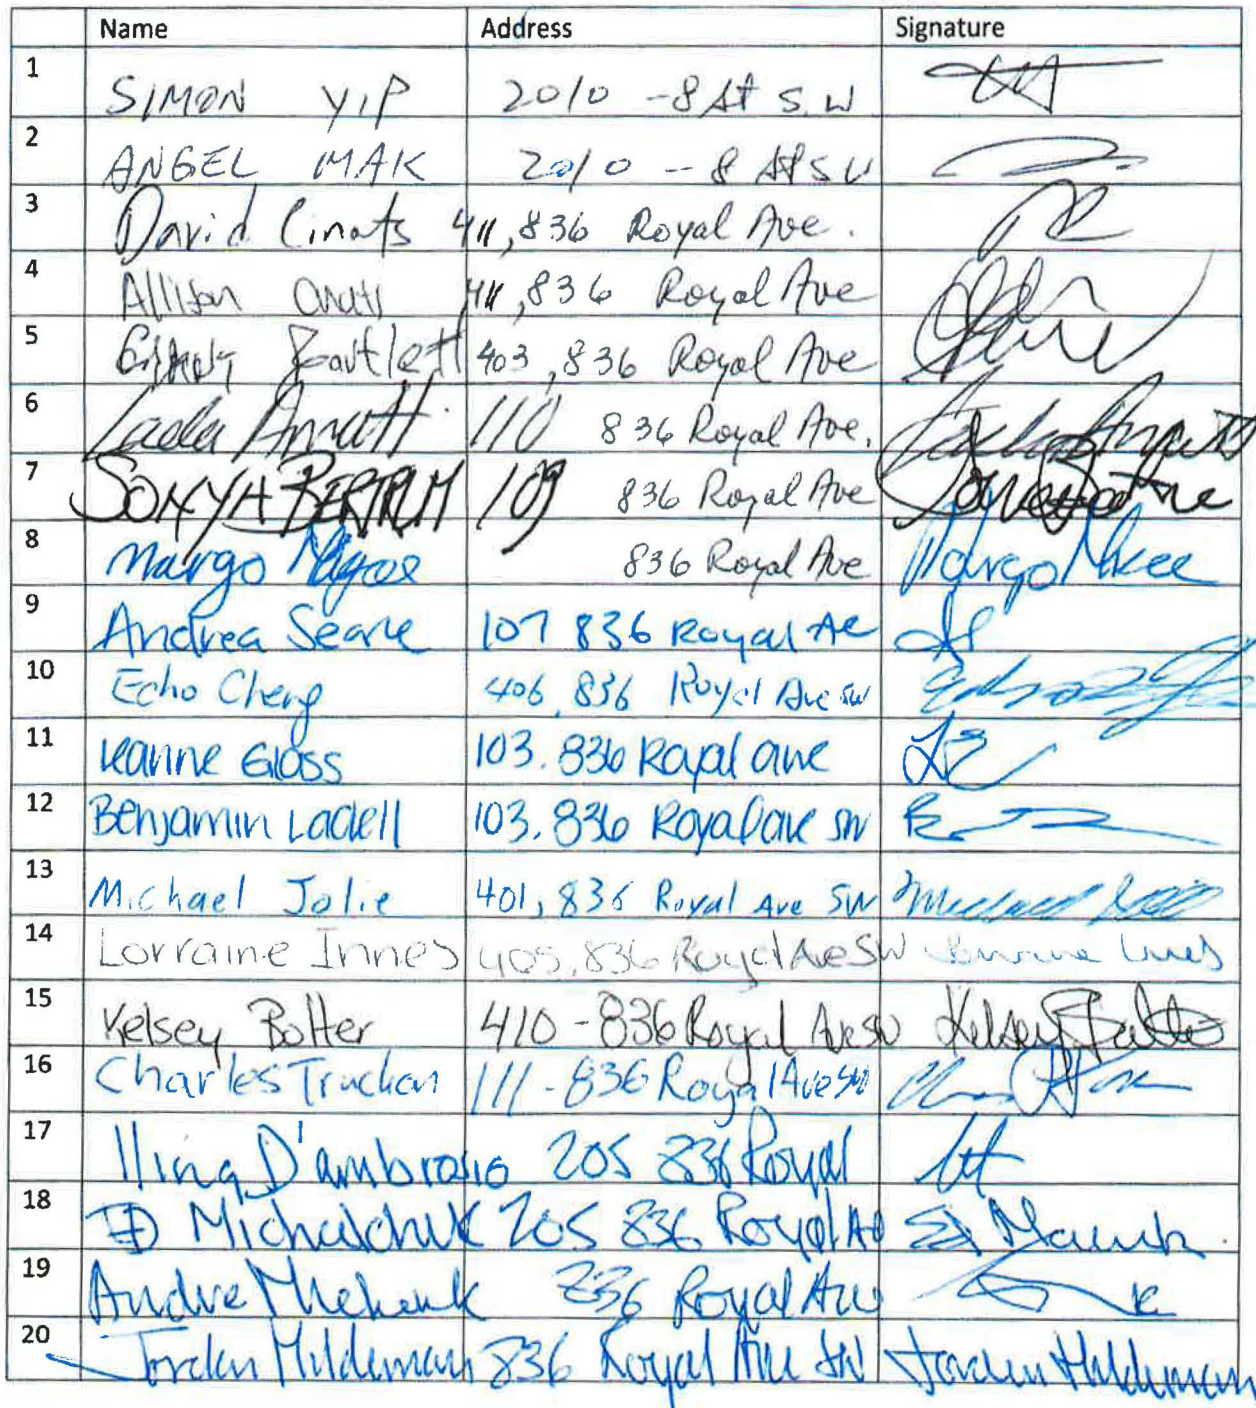 Name Address Signature
1 SIMON YIP 2010 - 8 St S.W
2 ANGEL MAK 2010 - 8 St SW
3 David Cinats 411, 836 Royal Ave.
4 Allison 411, 836 Royal Ave
5 Bartlett 403, 836 Royal Ave
6 110 836 Royal Ave.
7 SONYA BERTRAM 109 836 Royal Ave
8 Margo 836 Royal Ave Margo
9 Andrea Searle 107 836 Royal Ae
10 Echo Cheng 406, 836 Royal Ave SW
11 Leanne Glass 103. 836 Royal ave
12 Benjamin Ladell 103. 836 Royal ave SW
13 Michael Jolie 401, 836 Royal Ave SW Michael
14 Lorraine Innes 405, 836 Royal Ave SW Lorraine Innes
15 Kelsey Botter 410 - 836 Royal Ave SW Kelsey
16 Charles Truckan 111 - 836 Royal Ave SW
17 D'ambrosio 205 836 Royal
18 ED Michalchuk 205 836 Royal Av Ed
19 Andre 836 Royal Ave
20 Jorden Hildeman 836 Royal Ave SW Jorden Hildeman